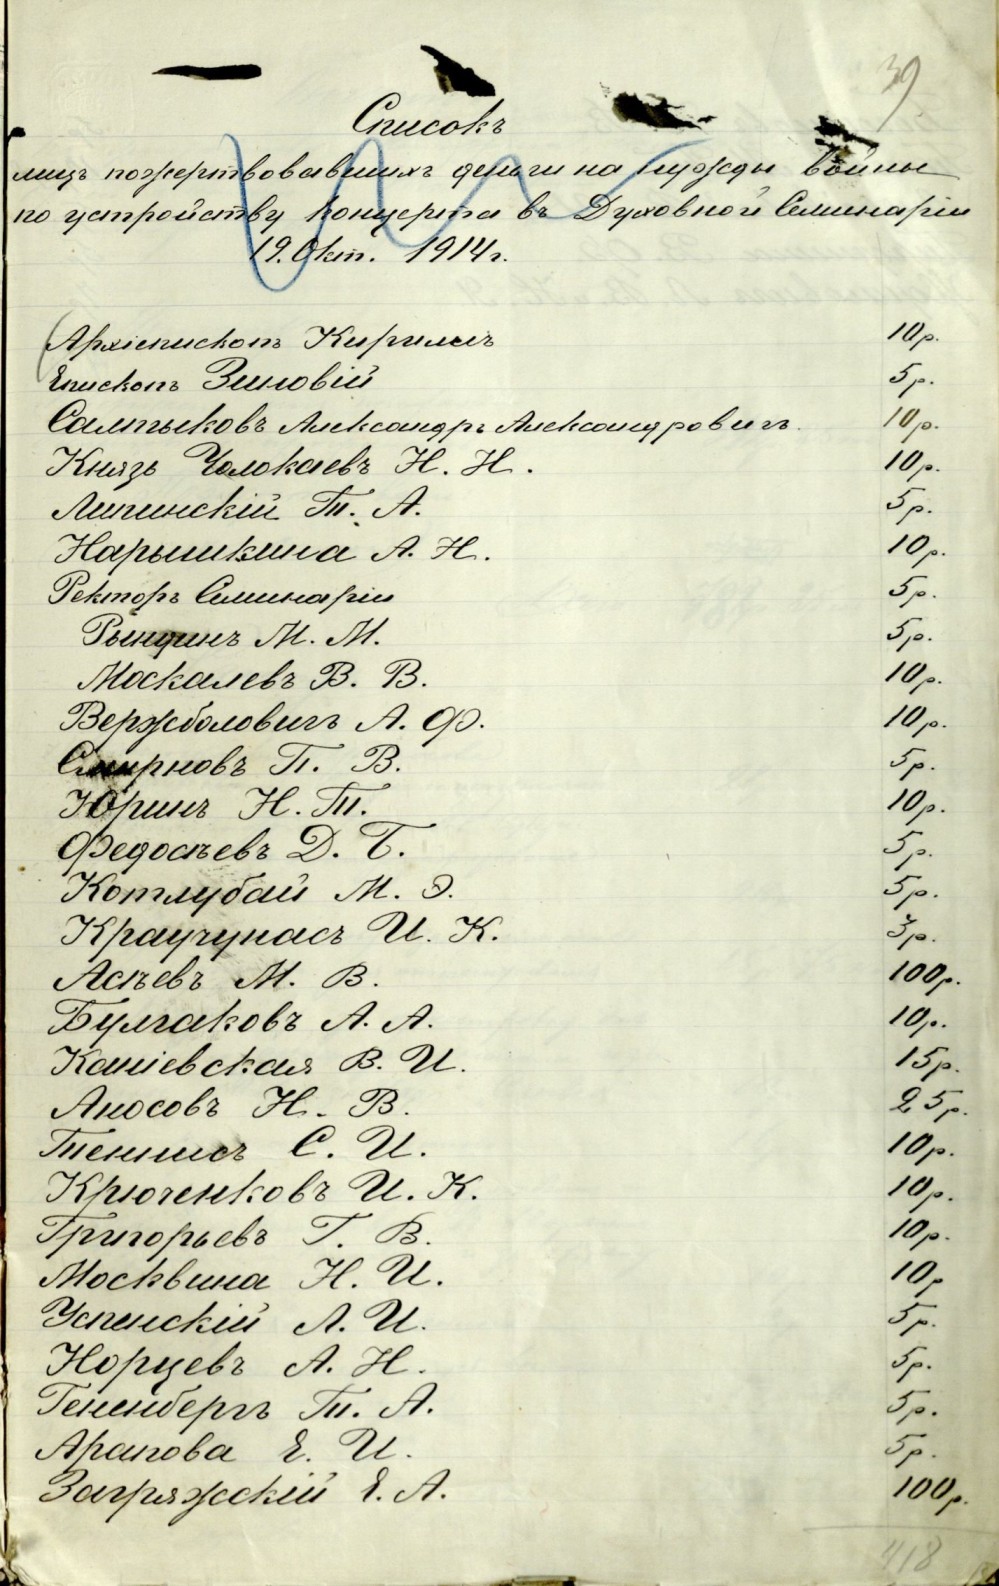 39
Списокъ
лицъ пожертвовавшихъ деньги на нужды войны
по устройству концерта въ Духовной Семинаріи
19. Окт. 1914 г.
Архіепископъ Кириллъ 10р.
Епископъ Зиновій 5р.
Салтыковъ Александръ Александровичъ 10р.
Князь Чолокаевъ Н. Н. 10р.
Липинскій Т. А. 5р.
Нарышкина А. Н. 10р.
Ректоръ Семинаріи 5р.
Рындинъ М. М. 5р.
Москалевъ В. В. 10р.
Вержболовичъ А. Ф. 10р.
Смирновъ П. В. 5р.
Юринъ Н. Т. 10р.
Федосѣевъ Д. Г. 5р.
Котлубай М. Э. 5р.
Краучунасъ И. К. 3р.
Асѣевъ М. В. 100р.
Булгаковъ А. А. 10р.
Каніевская В. И. 15р.
Аносовъ Н. В. 25р.
Теннисъ С. И. 10р.
Крюченковъ И. К. 10р.
Григорьевъ Г. В. 10р.
Москвина Н. И. 10р
Успенскій А. И. 5р.
Норцевъ А. Н. 5р.
Гененбергъ Т. А. 5р.
Арапова Е. И. 5р.
Загряжскій Е. А. 100р.
418